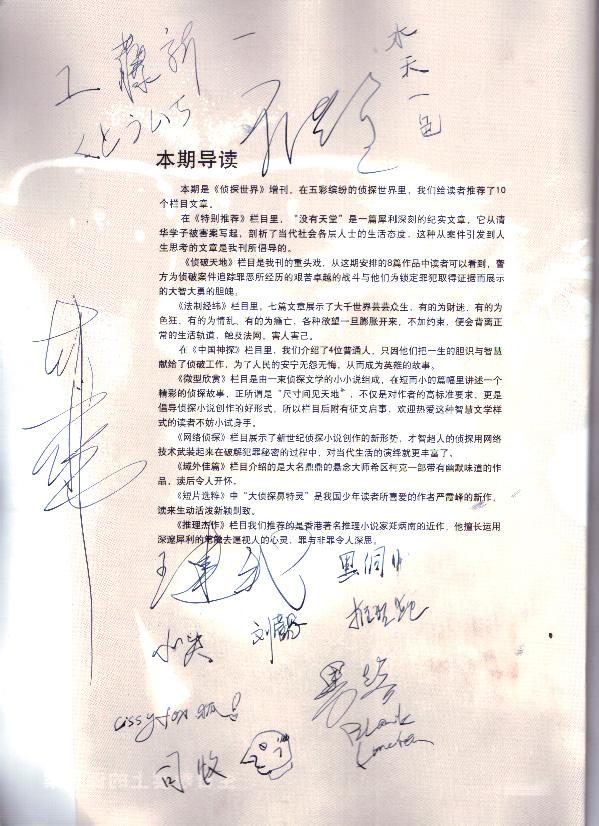 工藤新一
水天一色
くどういち
本期导读
本期是《侦探世界》增刊，在五彩缤纷的侦探世界里，我们给读者推荐了10
个栏目文章。
在《特别推荐》栏目里，“没有天堂”是一篇犀利深刻的纪实文章，它从清
华学子被害案写起，剖析了当代社会各层人士的生活态度，这种从案件引发到人
生思考的文章是我刊所倡导的。
《侦破天地》栏目是我刊的重头戏，从这期安排的8篇作品中读者可以看到，警
方为侦破案件追踪罪恶所经历的艰苦卓越的战斗与他们为锁定罪犯取得证据而展示
的大智大勇的胆魄。
《法制经纬》栏目里，七篇文章展示了大千世界芸芸众生，有的为财迷，有的为
色狂，有的为情乱，有的为瘾亡，各种欲望一旦膨胀开来，不加约束，便会背离正
常的生活轨道，触及法网、害人害己。
在《中国神探》栏目里，我们介绍了4位普通人，只因他们把一生的胆识与智慧
献给了侦破工作，为了人民的安宁无怨无悔，从而成为英雄的故事。
《微型欣赏》栏目是由一束侦探文学的小小说组成，在短而小的篇幅里讲述一个
精彩的侦探故事，正所谓是“尺寸间见天地”，不仅是对作者的高标准要求，更是
倡导侦探小说创作的好形式，所以栏目后附有征文启事，欢迎热爱这种智慧文学样
式的读者不妨小试身手。
《网络侦探》栏目展示了新世纪侦探小说创作的新形势，才智超人的侦探用网络
技术武装起来在破解犯罪秘密的过程中，对当代生活的演绎就更丰富了。
《域外佳篇》栏目介绍的是大名鼎鼎的悬念大师希区柯克一部带有幽默味道的作
品，读后令人开怀。
《短片选粹》中“大侦探鼻特灵”是我国少年读者所喜爱的作者严霞峰的新作，
读来生动活泼新颖别致。
《推理杰作》栏目我们推荐的是香港著名推理小说家郑炳南的近作，他擅长运用
深邃犀利的笔触去逼视人的心灵，罪与非罪令人深思。
cissy fox 狐!
司收